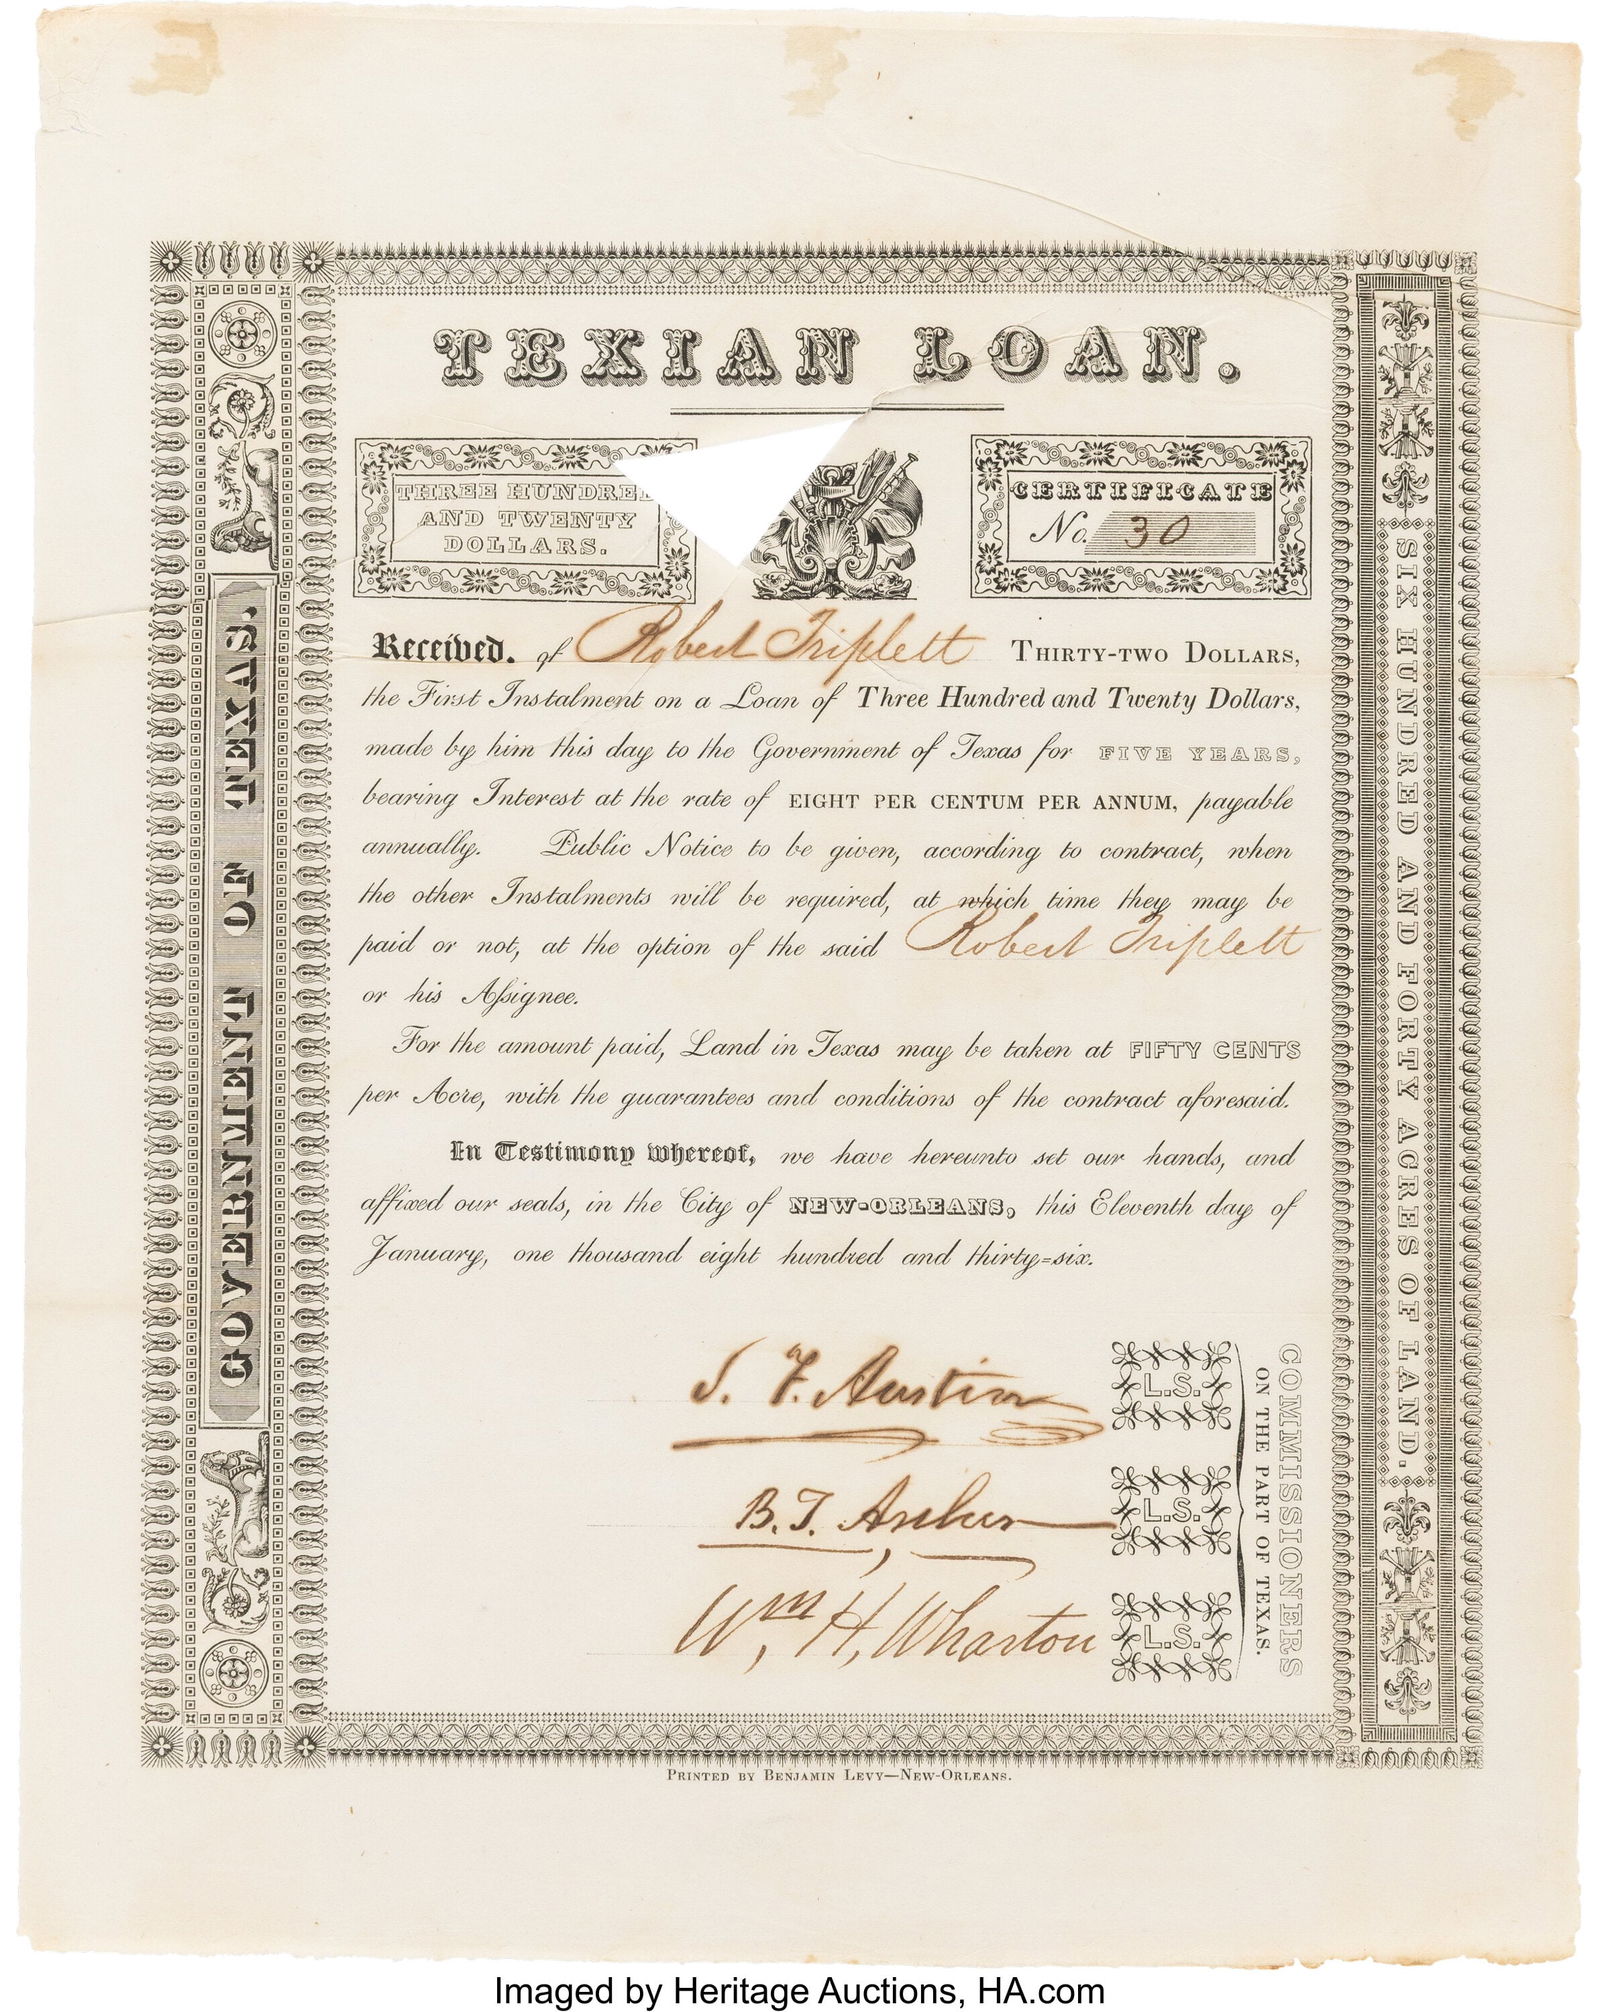 TEXIAN LOAN.
THREE HUNDRED
AND TWENTY
DOLLARS.
CERTIFICATE
No. 30
Received. of Robert Triplett THIRTY-TWO DOLLARS,
the First Instalment on a Loan of Three Hundred and Twenty Dollars,
made by him this day to the Government of Texas for FIVE YEARS,
bearing Interest at the rate of EIGHT PER CENTUM PER ANNUM, payable
annually. Public Notice to be given, according to contract, when
the other Instalments will be required, at which time they may be
paid or not, at the option of the said Robert Triplett
or his Aſsignee.
For the amount paid, Land in Texas may be taken at FIFTY CENTS
per Acre, with the guarantees and conditions of the contract aforesaid.
In Testimony whereof, we have hereunto set our hands, and
affixed our seals, in the City of NEW-ORLEANS, this Eleventh day of
January, one thousand eight hundred and thirty=six.
S. F. Austin
L.S.
B. T. Archer
L.S.
Wm, H, Wharton
L.S.
COMMISSIONERS
ON THE PART OF TEXAS.
GOVERNMENT OF TEXAS.
SIX HUNDRED AND FORTY ACRES OF LAND.
PRINTED BY BENJAMIN LEVY—NEW-ORLEANS.
Imaged by Heritage Auctions, HA.com